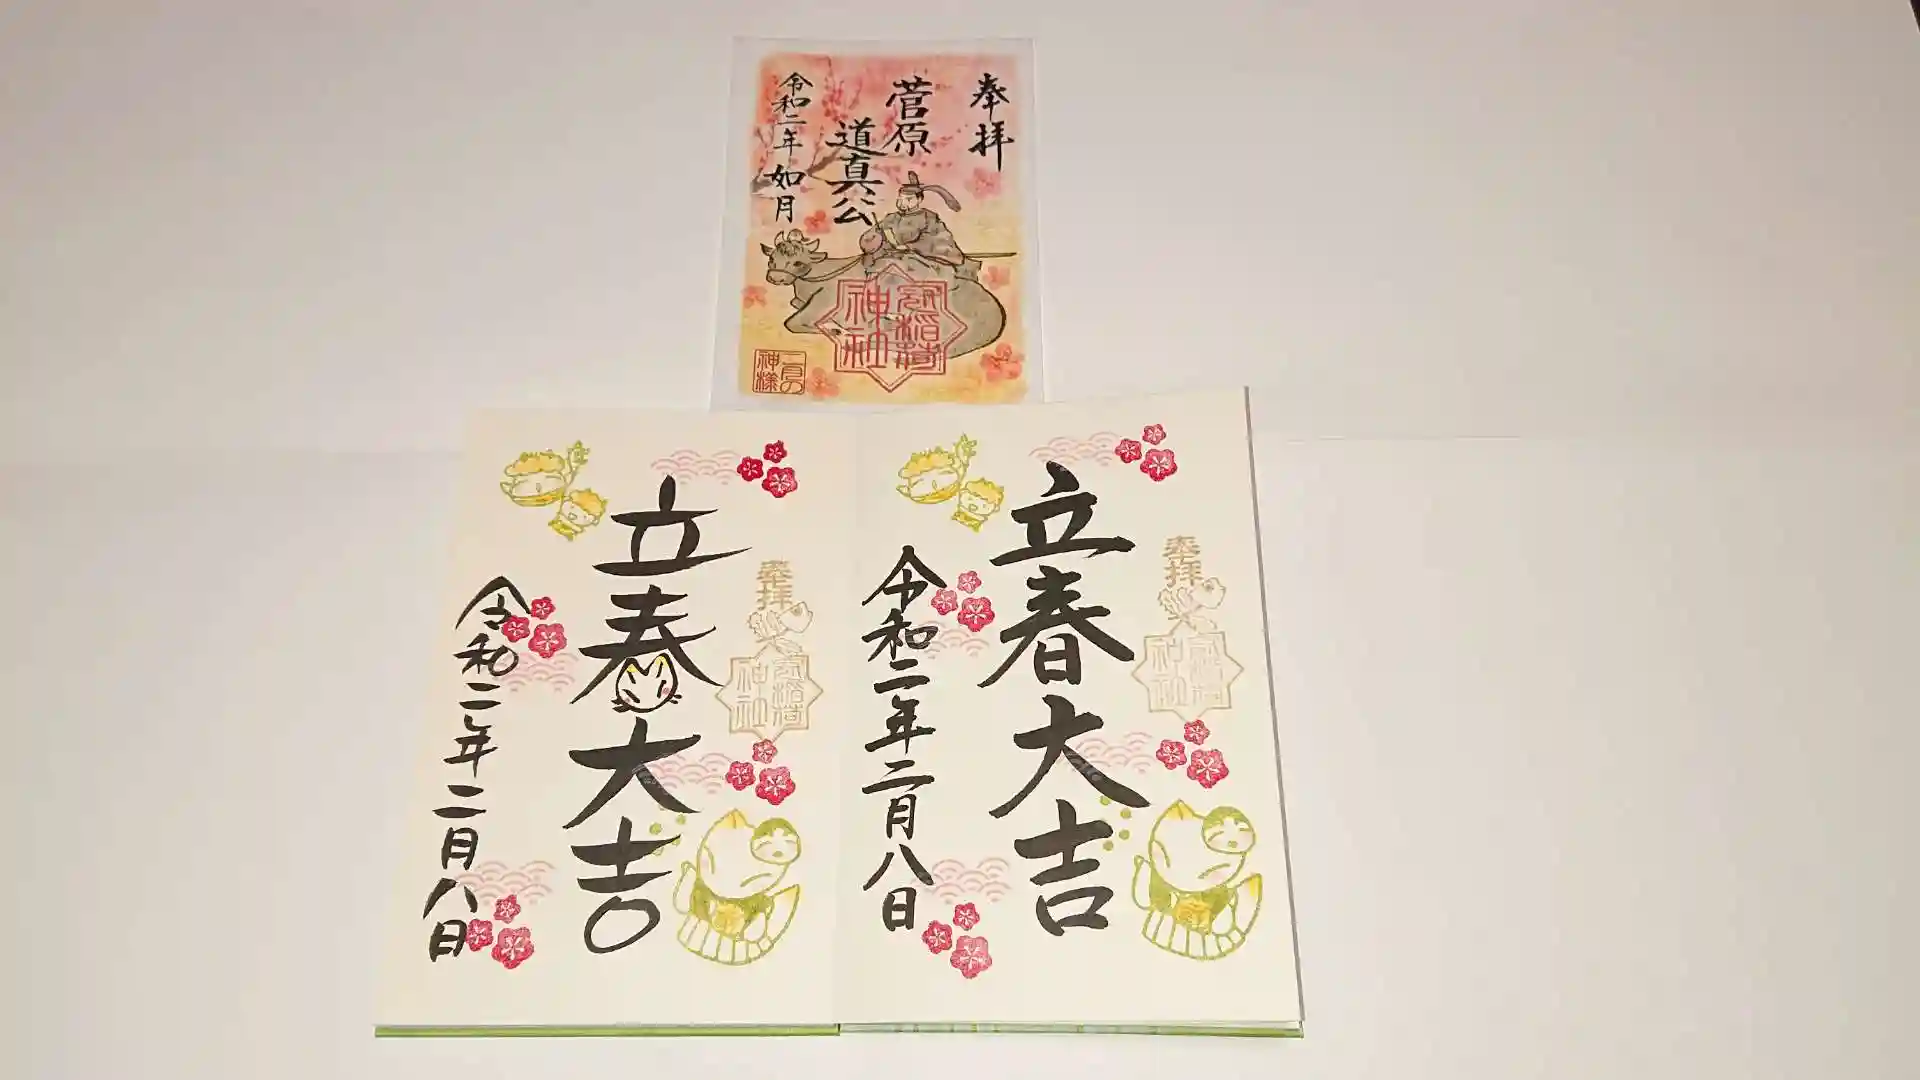 奉拝
菅原
道真公
令和二年 如月
神社
二月の
神様
奉拝
立春大吉
神社
令和二年二月八日
奉拝
立春大吉
神社
令和二年二月八日